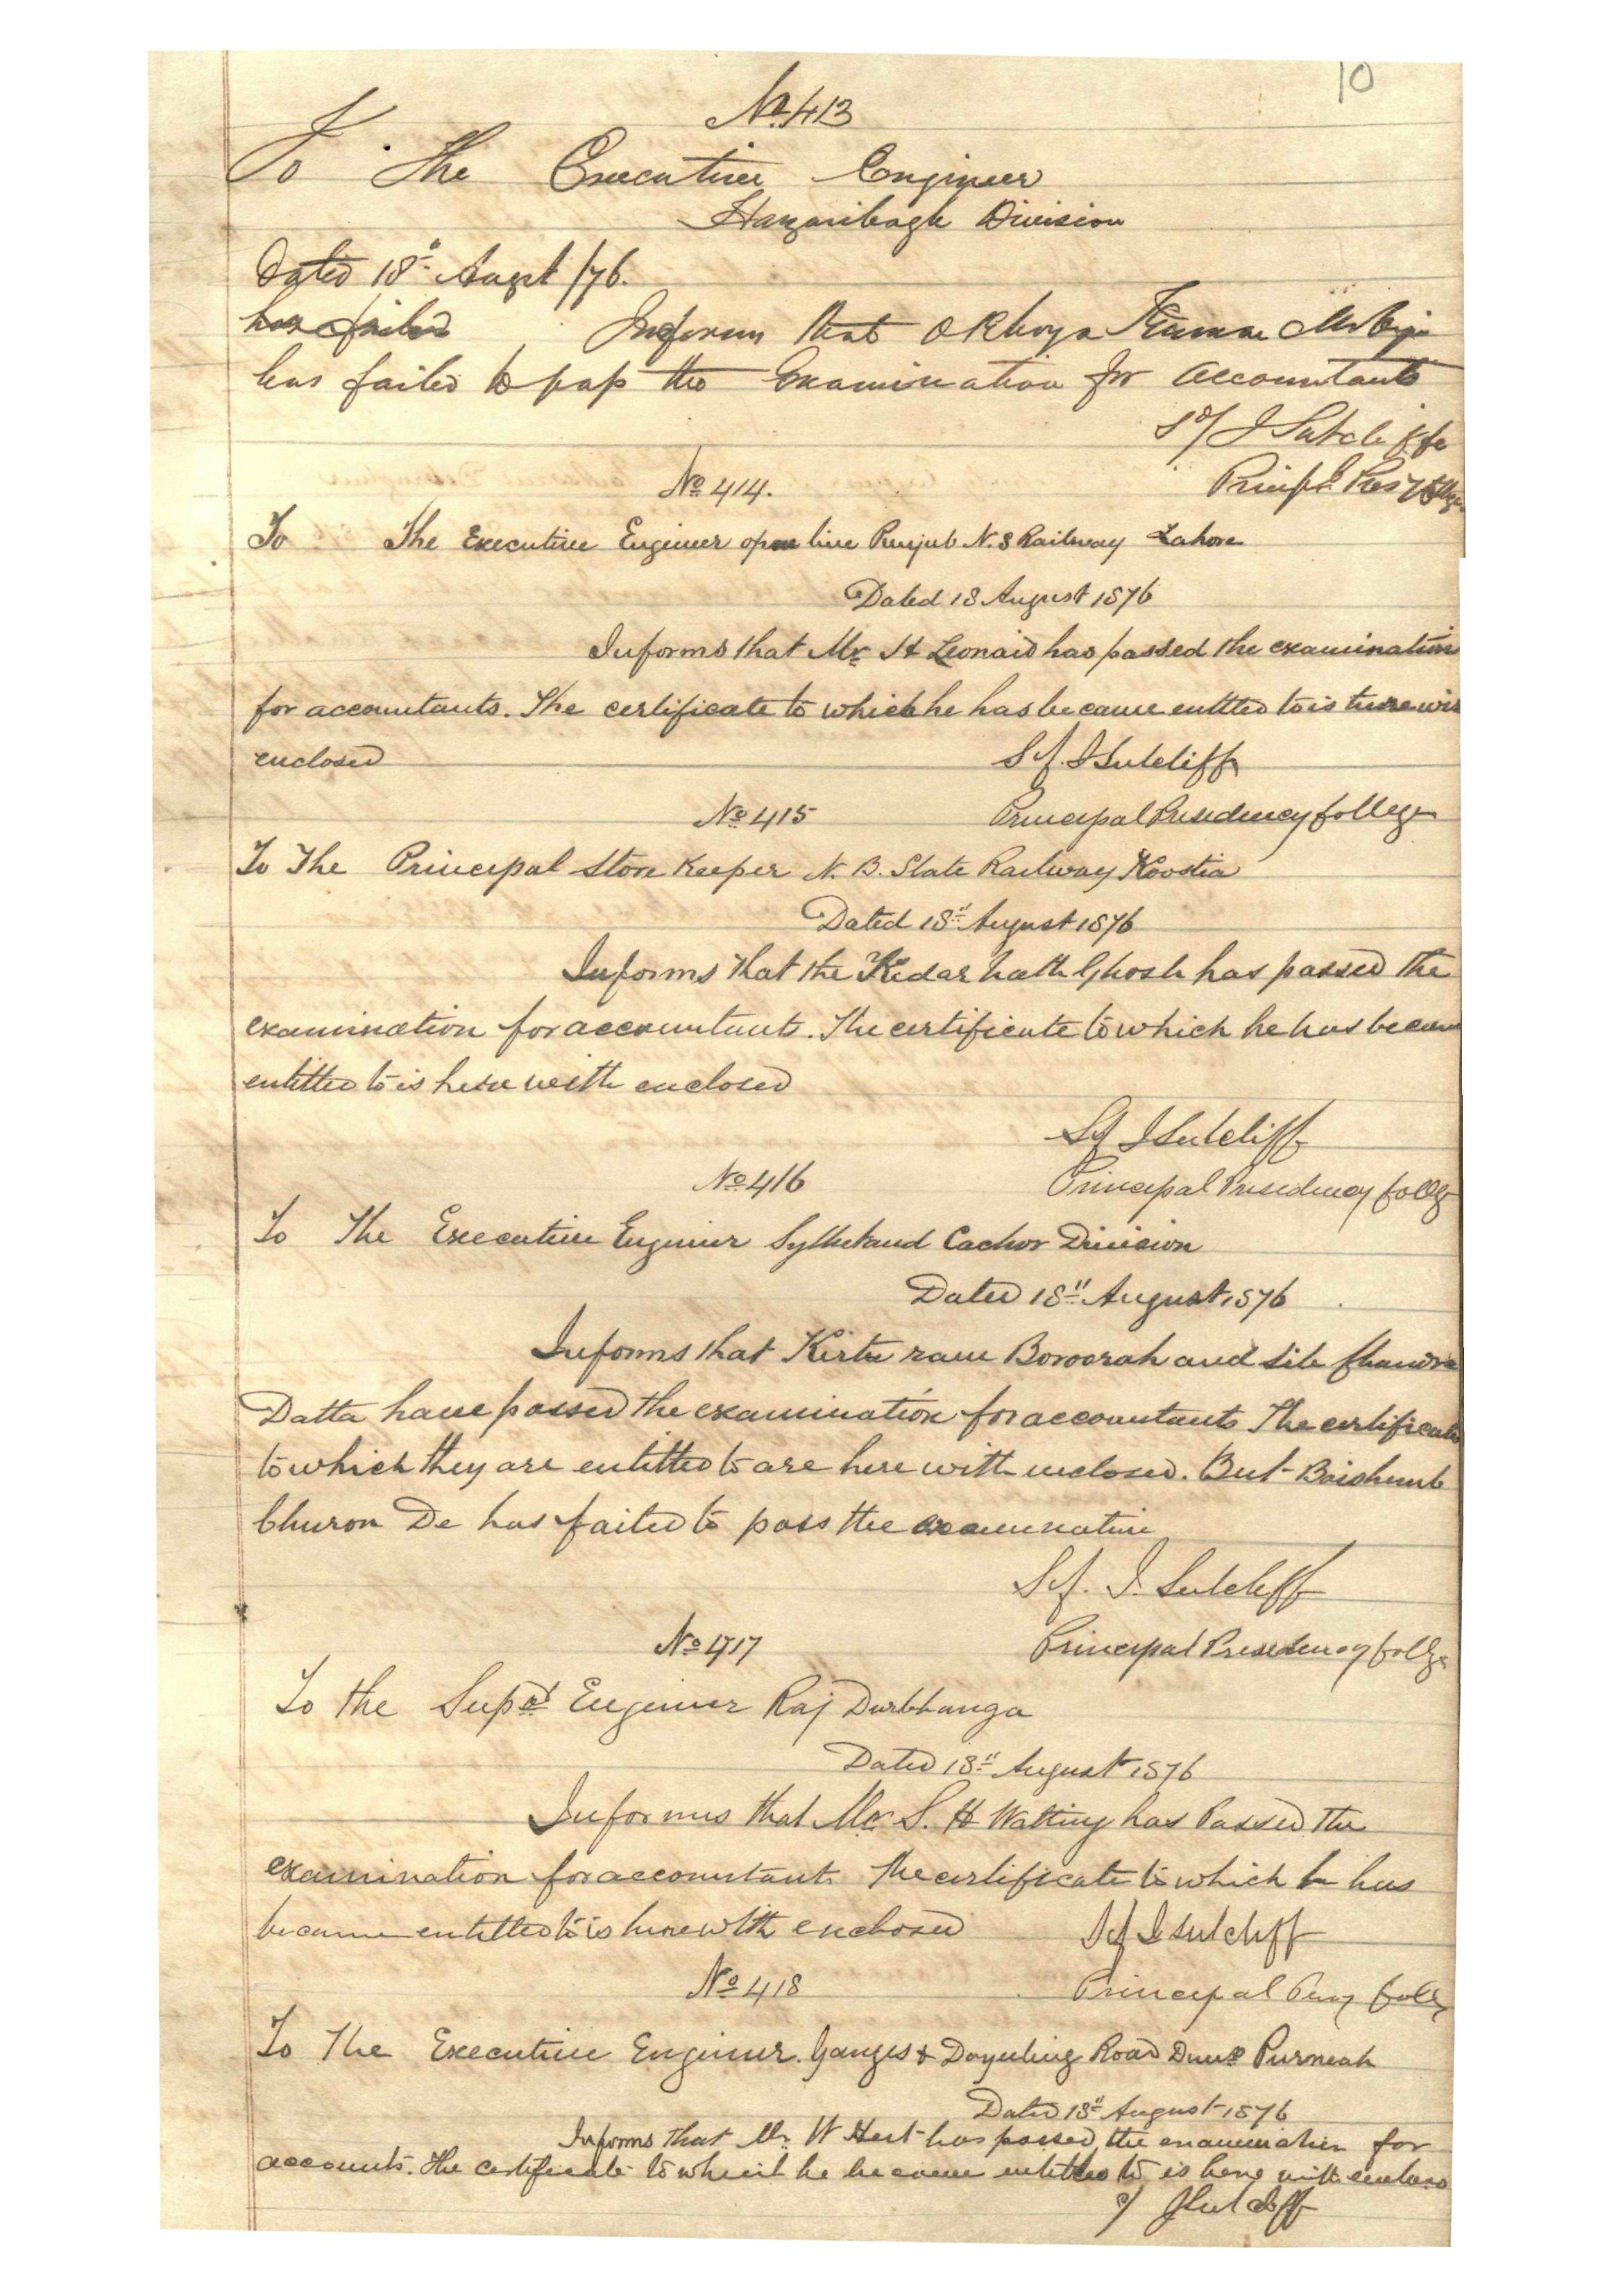 10
No. 413
To The Executive Engineer
Hazaribagh Division
Dated 18th Augst /76.
has failed Inform that Okhoya Kumar
has failed to pass the Examination for Accountants
Sd/ J Sutcliffe
No 414. Princpl Presy College
To The Executive Engineer open line Punjub N. S Railway Lahore
Dated 18 August 1876
Informs that Mr H Leonard has passed the examination
for accountants. The certificate to which he has became entitled to is
enclosed Sd. J Sutcliff
No 415 Principal Presidency College
To The Principal Store Keeper N. B. State Railway Koostia
Dated 18th August 1876
Informs that the Kedar nath Ghosh has passed the
examination for accountants. The certificate to which he has became
entitled to is here with enclosed
Sd J Sutcliff
No 416 Principal Presidency College
To The Executive Engineer Sylhet and Cachor Division
Dated 18th August 1876
Informs that Kirte ram Boroorah and Chandra
Datta have passed the examination for accountants The certificate
to which they are entitled to are here with enclosed. But
Churon De has failed to pass the examination
Sd. J. Sutcliff
No 417 Principal Presidency College
To the Supdt Engineer Raj Durbhanga
Dated 18th August 1876
Informs that Mr S. H Watting has Passed the
examination for accountants The certificate to which he has
became entitled to is herewith enclosed Sd J Sutcliff
No 418 Principal Presy Colle
To The Executive Engineer. Ganges & Darjeeling Road Purneah
Dated 18th August 1876
Informs that Mr. W Hert has passed the examination for
accounts. The certificate to which he became entitled to is here with
J Sutcliff